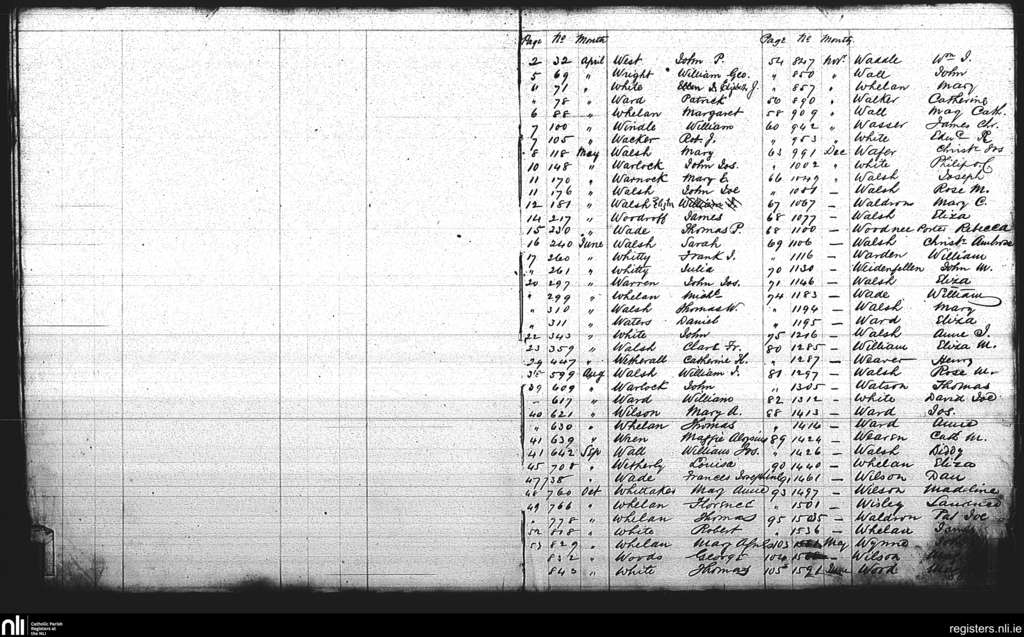 Page No Month Page No Month
2 32 April West John P. 54 847 Novr. Waddle Wm J.
5 69 " Wright William Geo. " 850 " Wall John
" 71 " White Ellen 857 " Whelan Mary
" 78 " Ward Patrick 56 890 " Walker Catherine
6 88 " Whelan Margaret 58 909 " Wall May Cath.
7 100 " Windle William 60 942 " Wasser James Chr.
7 105 " Wacker Robt. J. " 953 " White Edwd. R
8 118 May Walsh Mary 63 991 Dec Wafer Christr. Jos
10 148 " Warlock John Jos. " 1002 " White Philip
11 170 " Warnock Mary E. 66 1049 " Walsh Joseph
11 176 " Walsh John Joe " 1051 - Walsh Rose M.
12 181 " Walsh William 67 1067 - Waldrons Mary C.
14 217 " Woodroff James 68 1077 - Walsh Eliza
15 230 " Wade Thomas P. 68 1100 - Porter Rebecca
16 240 June Walsh Sarah 69 1106 - Walsh Christr. Ambrose
17 260 " Whitty Frank J. " 1116 - Warden William
" 261 " Whitty Julia 70 1130 - Weidenfellen John M.
20 297 " Warren John Jos. 71 1146 - Walsh Eliza
" 299 " Whelan Michl. 74 1183 - Wade William
" 310 " Walsh Thomas W. " 1194 - Walsh Mary
" 311 " Waters Daniel " 1195 - Ward Eliza
22 343 " White John 75 1216 - Walsh Anne J.
23 359 " Walsh Clare Fr. 80 1285 - William Eliza M.
29 447 " Wetherall Catherine H. " 1287 - Weaver Henry
38 599 Aug Walsh William J. 81 1297 - Walsh Rose M.
39 609 " Warlock John " 1305 - Watson Thomas
" 617 " Ward William 82 1312 - White David Joe
40 621 " Wilson Mary A. 88 1413 - Ward Jos.
" 630 " Whelan Thomas " 1416 - Ward Annie
41 639 " Wren Maggie Aloysius 89 1424 - Wearen Cath M.
41 642 Sep Wall William Jos. " 1426 - Walsh Biddy
45 708 " Wetherly Louisa 90 1440 - Whelan Eliza
47 738 " Wade Frances Josephine 91 1461 - Wilson Dan
48 760 Oct Whittaker May Anne 93 1497 - Wilson Madeline
49 766 " Whelan Florence " 1501 - Wisley Laurence
" 778 " Whelan Thomas 95 1535 - Waldron Pat Joe
52 818 " White Robert " 1536 - Whelan
53 829 " Whelan May Agnes 103 May Wynne
832 " Woods George 104 - Wilson
843 " White Thomas 105 1591 June Wood
nli Catholic Parish Registers at the NLI
registers.nli.ie